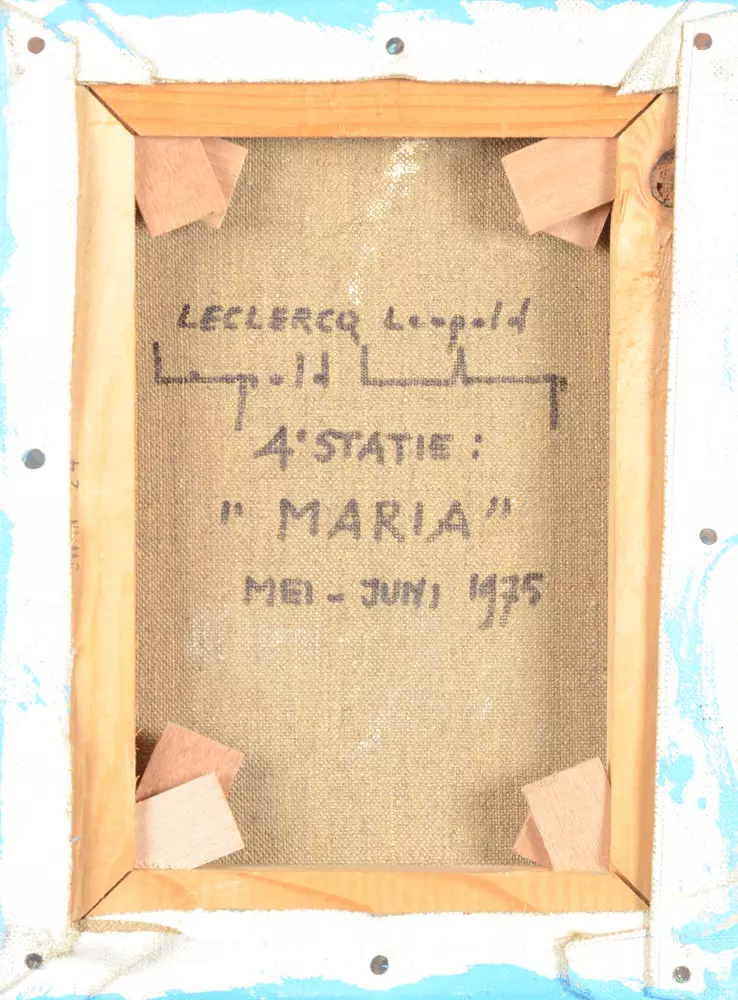 LECLERCQ Leopold
Leopold
4e STATIE :
" MARIA "
MEI - JUNI 1975